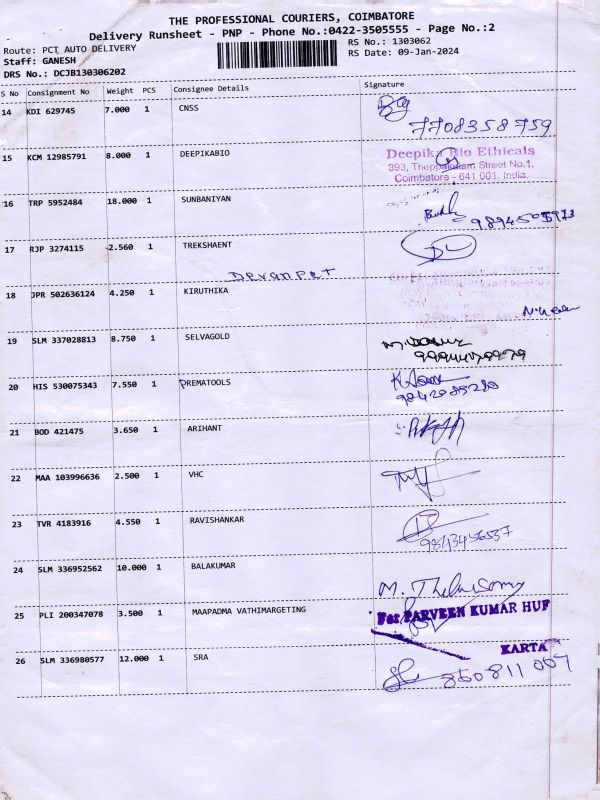 THE PROFESSIONAL COURIERS, COIMBATORE
Delivery Runsheet - PNP - Phone No.:0422-3505555 - Page No.:2
Route: PCT AUTO DELIVERY RS No.: 1303062
Staff: GANESH RS Date: 09-Jan-2024
DRS No.: DCJB130306202
S No Consignment No Weight PCS Consignee Details Signature
14 KDI 629745 7.000 1 CNSS
7708358759
15 KCM 12985791 8.000 1 DEEPIKABIO
Deepika Bio Ethicals
393, Theppakulam Street No.1,
Coimbatore - 641 001. India.
16 TRP 5952484 18.000 1 SUNBANIYAN
17 RJP 3274115 2.560 1 TREKSHAENT
DEVANPET
18 JPR 502636124 4.250 1 KIRUTHIKA
19 SLM 337028813 8.750 1 SELVAGOLD
20 HIS 530075343 7.550 1 PREMATOOLS
21 BOD 421475 3.650 1 ARIHANT
22 MAA 103996636 2.500 1 VHC
23 TVR 4183916 4.550 1 RAVISHANKAR
9843456537
24 SLM 336952562 10.000 1 BALAKUMAR
25 PLI 200347078 3.500 1 MAAPADMA VATHIMARGETING
For PARVEEN KUMAR HUF
KARTA
26 SLM 336980577 12.000 1 SRA